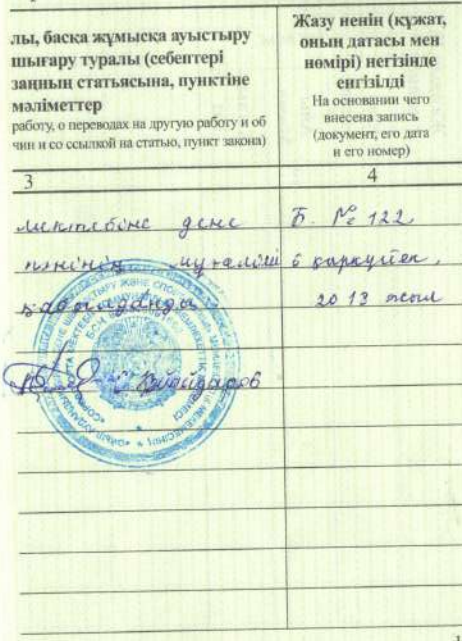 лы, басқа жұмысқа ауыстыру
шығару туралы (себептері
заңның статьясына, пунктіне
мәліметтер
работу, о переводах на другую работу и об
чин и со ссылкой на статью, пункт закона)
Жазу ненің (құжат,
оның датасы мен
нөмірі) негізінде
енгізілді
На основании чего
внесена запись
(документ, его дата
и его номер)
3
4
мектебіне дене
Б. № 122
пәнінің мұғалімі
6 қыркүйек,
қабылданды
2013 жыл